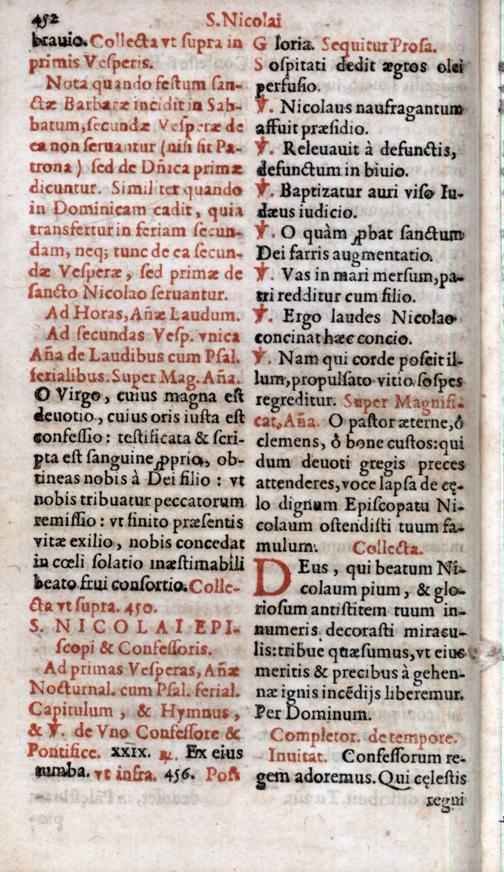 452
S. Nicolai
brauio. Collecta vt supra in
primis Vesperis.
Nota quando festum san-
ctæ Barbaræ incidit in Sab-
batum, secundæ Vesperæ de
ea non seruantur (nisi sit Pa-
trona) sed de Dñica primæ
dicuntur. Similiter quando
in Dominicam cadit, quia
transfertur in feriam secun-
dam, neq; tunc de ea secun-
dæ Vesperæ, sed primæ de
sancto Nicolao seruantur.
Ad Horas, Añæ Laudum.
Ad secundas Vesp. vnica
Aña de Laudibus cum Psal.
ferialibus. Super Mag. Aña.
O Virgo, cuius magna est
deuotio, cuius oris iusta est
confessio: testificata & scri-
pta est sanguine ꝓprio, ob-
tineas nobis à Dei filio: vt
nobis tribuatur peccatorum
remissio: vt finito præsentis
vitæ exilio, nobis concedat
in cœli solatio inæstimabili
beato frui consortio. Colle-
cta vt supra. 450.
S. NICOLAI EPI-
scopi & Confessoris.
Ad primas Vesperas, Añæ
Nocturnal. cum Psal. ferial.
Capitulum, & Hymnus,
& ℣. de Vno Confessore &
Pontifice. XXIX. ℞. Ex eius
tumba. vt infra. 456. Post
Gloria. Sequitur Prosa.
Sospitati dedit ægros olei
perfusio.
℣. Nicolaus naufragantum
affuit præsidio.
℣. Releuauit à defunctis,
defunctum in biuio.
℣. Baptizatur auri viso Iu-
dæus iudicio.
℣. O quàm ꝓbat sanctum
Dei farris augmentatio.
℣. Vas in mari mersum, pa-
tri redditur cum filio.
℣. Ergo laudes Nicolao
concinat hæc concio.
℣. Nam qui corde poscit il-
lum, propulsato vitio sospes
regreditur. Super Magnifi-
cat, Aña. O pastor æterne, ô
clemens, ô bone custos: qui
dum deuoti gregis preces
attenderes, voce lapsa de cę-
lo dignum Episcopatu Ni-
colaum ostendisti tuum fa-
mulum. Collecta.
DEus, qui beatum Ni-
colaum pium, & glo-
riosum antistitem tuum in-
numeris decorasti miracu-
lis: tribue quæsumus, vt eius
meritis & precibus à gehen-
næ ignis incẽdijs liberemur.
Per Dominum.
Completor. de tempore.
Inuitat. Confessorum re-
gem adoremus. Qui cęlestis
regni